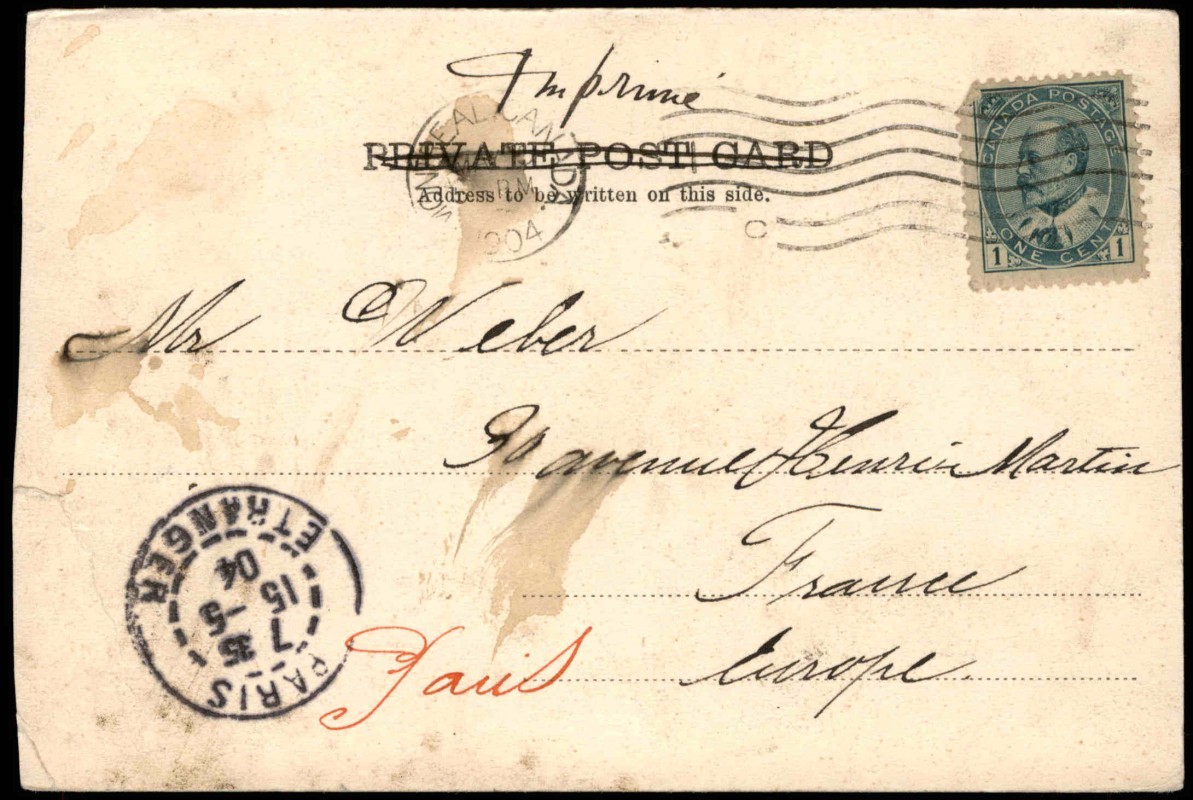 Imprimé
CANADA POSTAGE
ONE CENT
1 1
MONTREAL CANADA
PM
1904
PRIVATE POST CARD
Address to be written on this side.
C
Mr Weber
avenue Henri Martin
France
Paris Europe.
PARIS
ETRANGER
7 35
15 -5
04